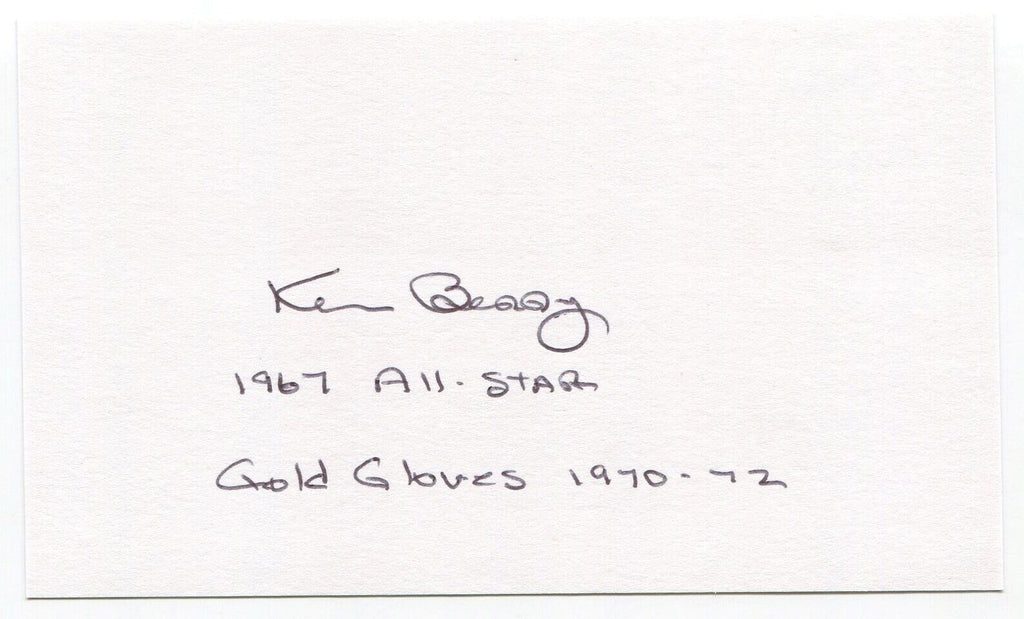 Ken Berry
1967 All-STAR
Gold Gloves 1970-72